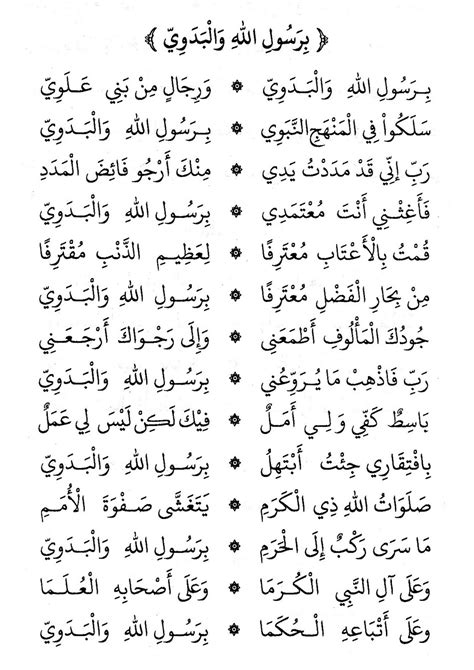 ﴿ بِرَسُولِ اللهِ وَالْبَدَوِيّ ﴾
بِـرَسُولِ اللهِ وَالْبَـدَوِيّ ۞ وَرِجَالٍ مِنْ بَنِي عَـلَوِيّ
سَلَكُواْ فِي الْمَنْهَجِ النَّبَوِي ۞ بِـرَسُولِ اللهِ وَالْبَـدَوِيّ
رَبِّ إِنّي قَدْ مَدَدْتُ يَدِي ۞ مِنْكَ أَرْجُو فَائِضَ الْمَدَدِ
فَـأَغِثْـنِي أَنْتَ مُعْتَمَدِي ۞ بِرَسُـولِ اللهِ وَالْبَـدَوِيّ
قُمْتُ بِالْأَعْتَابِ مُعْتَرِفًا ۞ لِعَظِيـمِ الذَّنْبِ مُقْتَرِفًا
مِنْ بِحَارِ الْفَضْلِ مُعْتَرِفًا ۞ بِرَسُـولِ اللهِ وَالْبَـدَوِيّ
جُودُكَ الْمَأْلُوفِ أَطْمَعَنِي ۞ وَإِلَى رَجْوَاكَ أَرْجَعَـنِي
رَبِّ فَاذْهِبْ مَا يُـرَوِّعُنِي ۞ بِرَسُـولِ اللهِ وَالْبَـدَوِيّ
بَاسِطٌ كَفِّي وَ لِـي أَمَـلٌ ۞ فِيْكَ لَكِنْ لَيْسَ لِي عَمَلٌ
بِافْتِقَارِي جِئْتُ أَبْتَهِلُ ۞ بِرَسُـولِ اللهِ وَالْبَـدَوِيّ
صَلَوَاتُ اللهِ ذِي الْكَرَمِ ۞ يَتَغَشَّى صَـفْوَةَ الْأُمَـمِ
مَا سَرَى رَكْبٌ إِلَى الْحَرَمِ ۞ بِرَسُـولِ اللهِ وَالْبَـدَوِيّ
وَعَلَى آلِ النَّبِي الْكُـرَمَا ۞ وَعَلَى أَصْحَابِهِ الْعُـلَمَا
وعَلَى أَتْبَاعِهِ الْحُكَمَا ۞ بِرَسُـولِ اللهِ وَالْبَـدَوِيّ